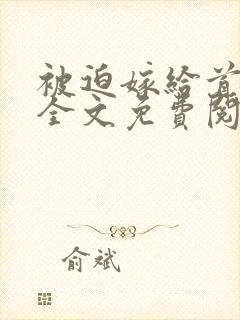 被迫嫁给首
全文免費閱
俞斌